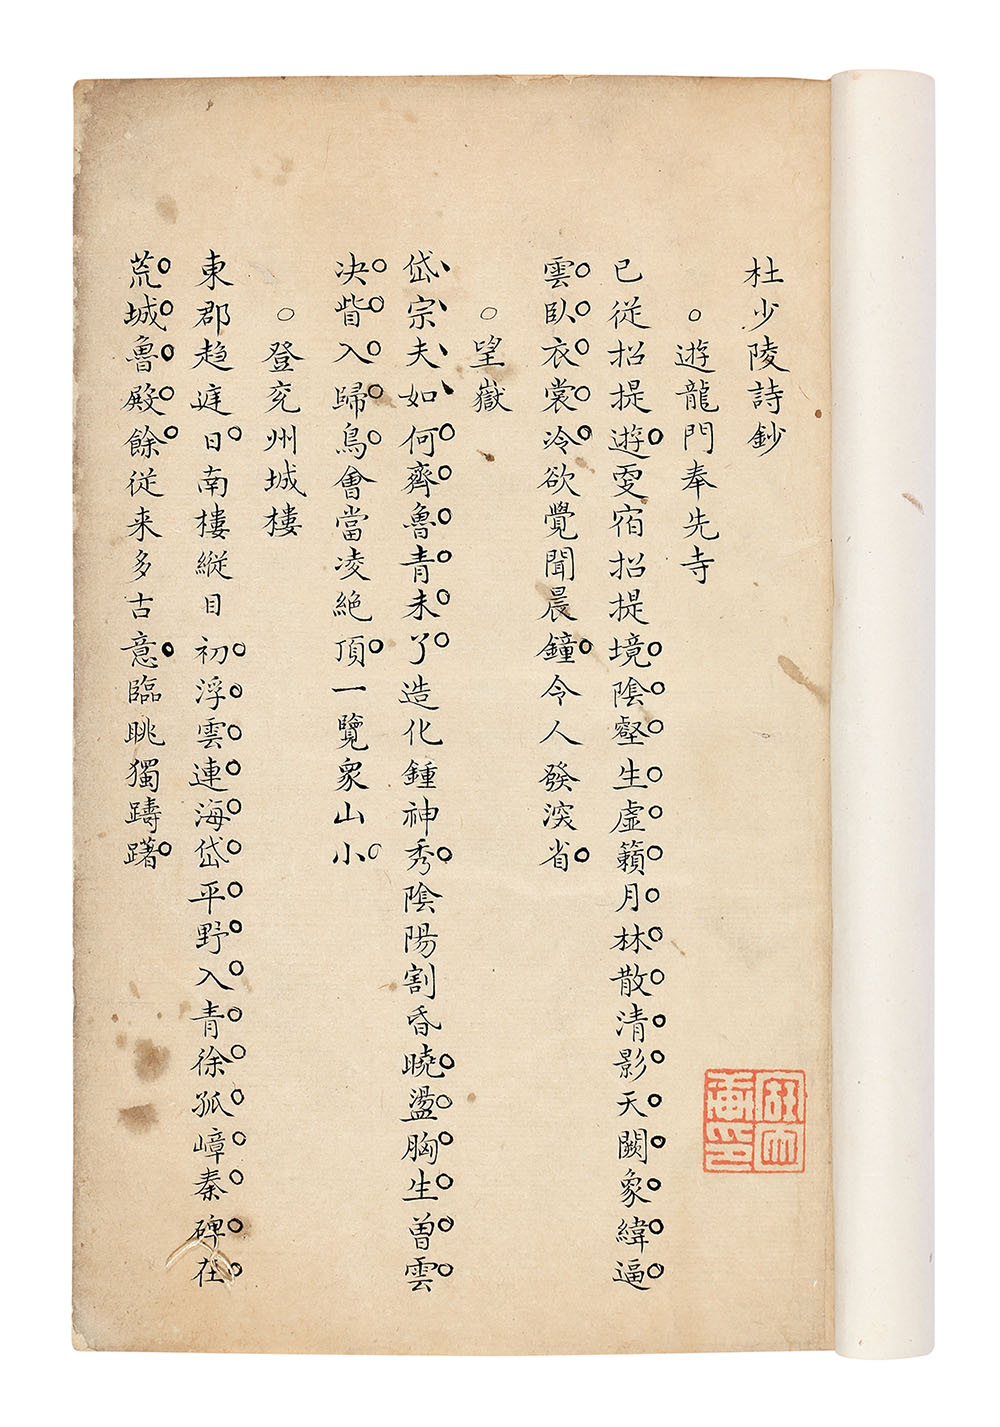 杜少陵詩鈔
○遊龍門奉先寺
已從招提遊更宿招提境陰壑生虛籟月林散清影天闕象緯逼
雲臥衣裳冷欲覺聞晨鐘令人發深省
○望嶽
岱宗夫如何齊魯青未了造化鍾神秀陰陽割昏曉盪胸生曾雲
决眥入歸鳥會當凌絶頂一覽衆山小
○登兖州城樓
東郡趍庭日南樓縱目初浮雲連海岱平野入青徐孤嶂秦碑在
荒城魯殿餘從来多古意臨眺獨躊躇